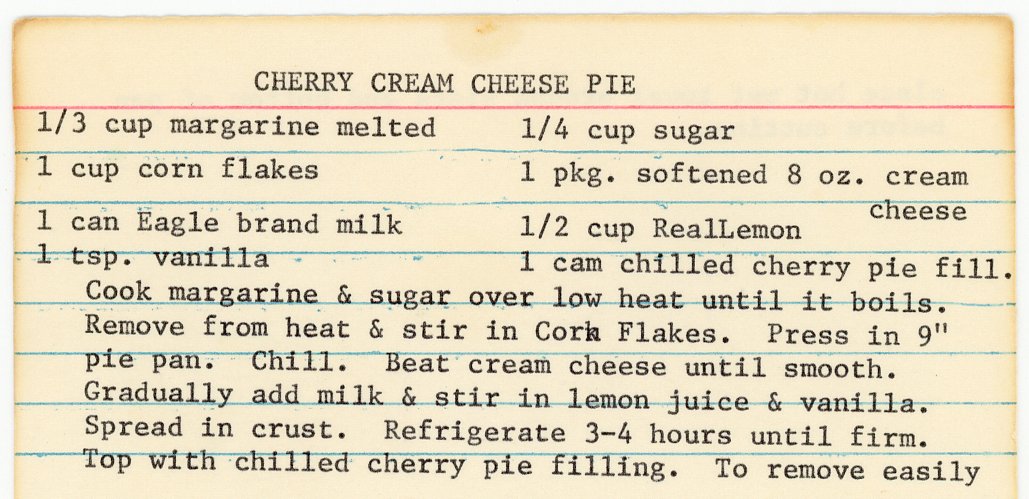 CHERRY CREAM CHEESE PIE
1/3 cup margarine melted 1/4 cup sugar
1 cup corn flakes 1 pkg. softened 8 oz. cream
cheese
1 can Eagle brand milk 1/2 cup RealLemon
1 tsp. vanilla 1 cam chilled cherry pie fill.
Cook margarine & sugar over low heat until it boils.
Remove from heat & stir in Corn Flakes. Press in 9"
pie pan. Chill. Beat cream cheese until smooth.
Gradually add milk & stir in lemon juice & vanilla.
Spread in crust. Refrigerate 3-4 hours until firm.
Top with chilled cherry pie filling. To remove easily